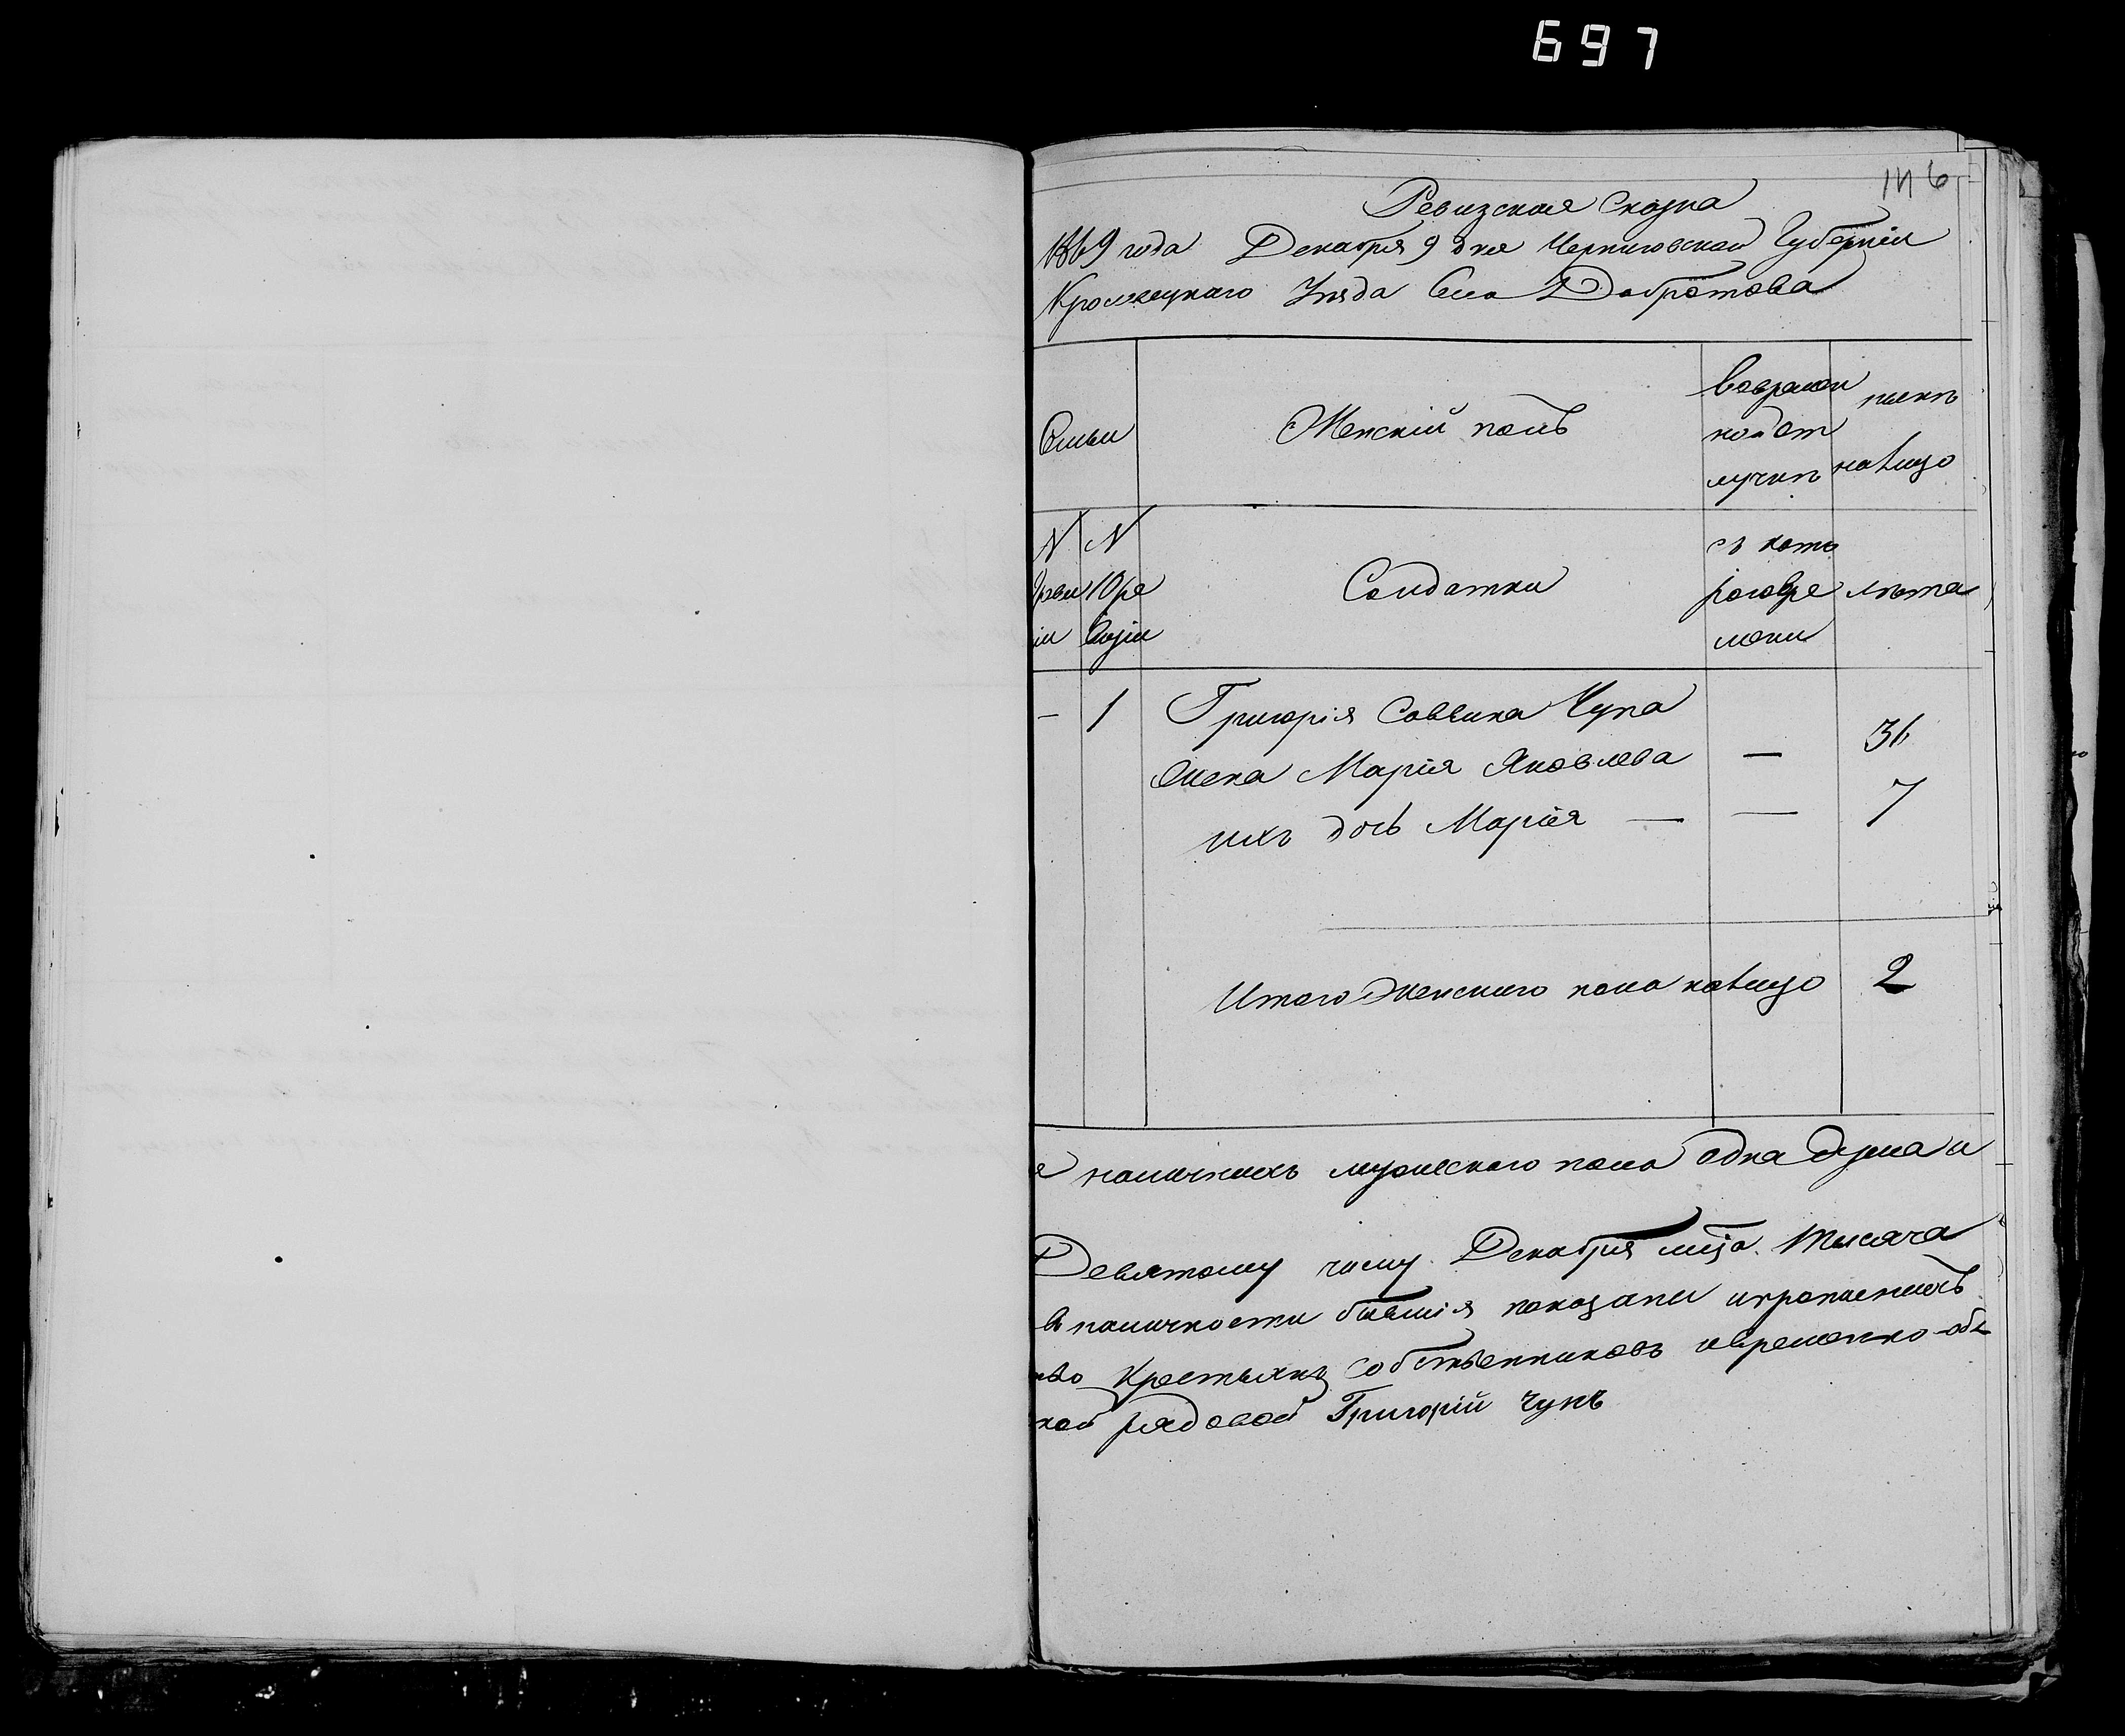 697
146
Ревизская Сказка
1869 года Декабря 9 дня Черниговской Губерніи
Кролевецкаго Уезда Село Добротова
Семьи
Женскій полъ
во времен
ной от
лучкѣ
нынѣ
налицо
N N
10 ре
визіи
Солдатки
съ кото
раго вре
мени
лѣта
— 1 Григорія Саввина Чупа
Жена Марія Яковлева — 36
ихъ дочь Марія — — 7
Итого Женскаго пола налицо 2
наличныхъ мужескаго пола одна душа и
Девятому числу Декабря мца. тысяча
в наличности бывшія показаны и прописныхъ
Крестьянъ Собственниковъ и временно-обя
рядовой Григорій Чупъ